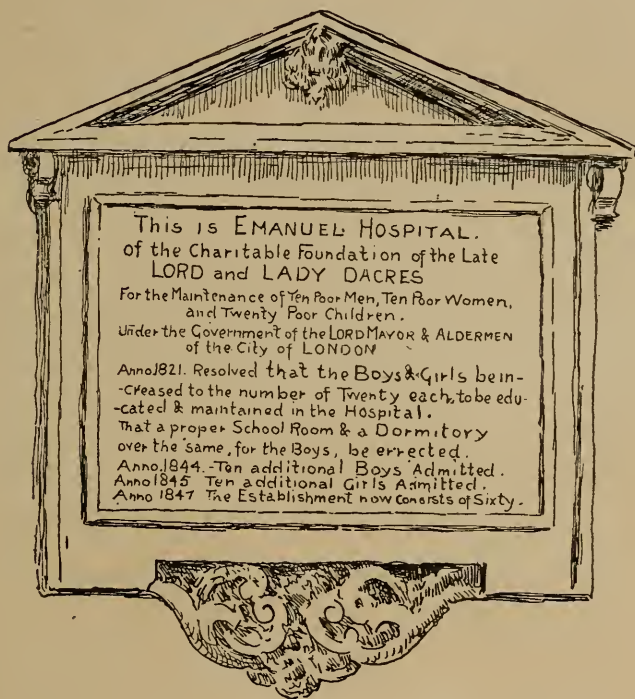 This is EMANUEL HOSPITAL.
of the Charitable Foundation of the Late
LORD and LADY DACRES
For the Maintenance of Ten Poor Men, Ten Poor Women,
and Twenty Poor Children.
Under the Government of the LORD MAYOR & ALDERMEN
of the City of LONDON
Anno 1821. Resolved that the Boys & Girls be in-
-creased to the number of Twenty each, to be edu-
-cated & maintained in the Hospital.
That a proper School Room & a Dormitory
over the same, for the Boys, be errected.
Anno. 1844.-Ten additional Boys Admitted.
Anno 1845 Ten additional Girls Admitted.
Anno 1847 The Establishment now consists of Sixty.